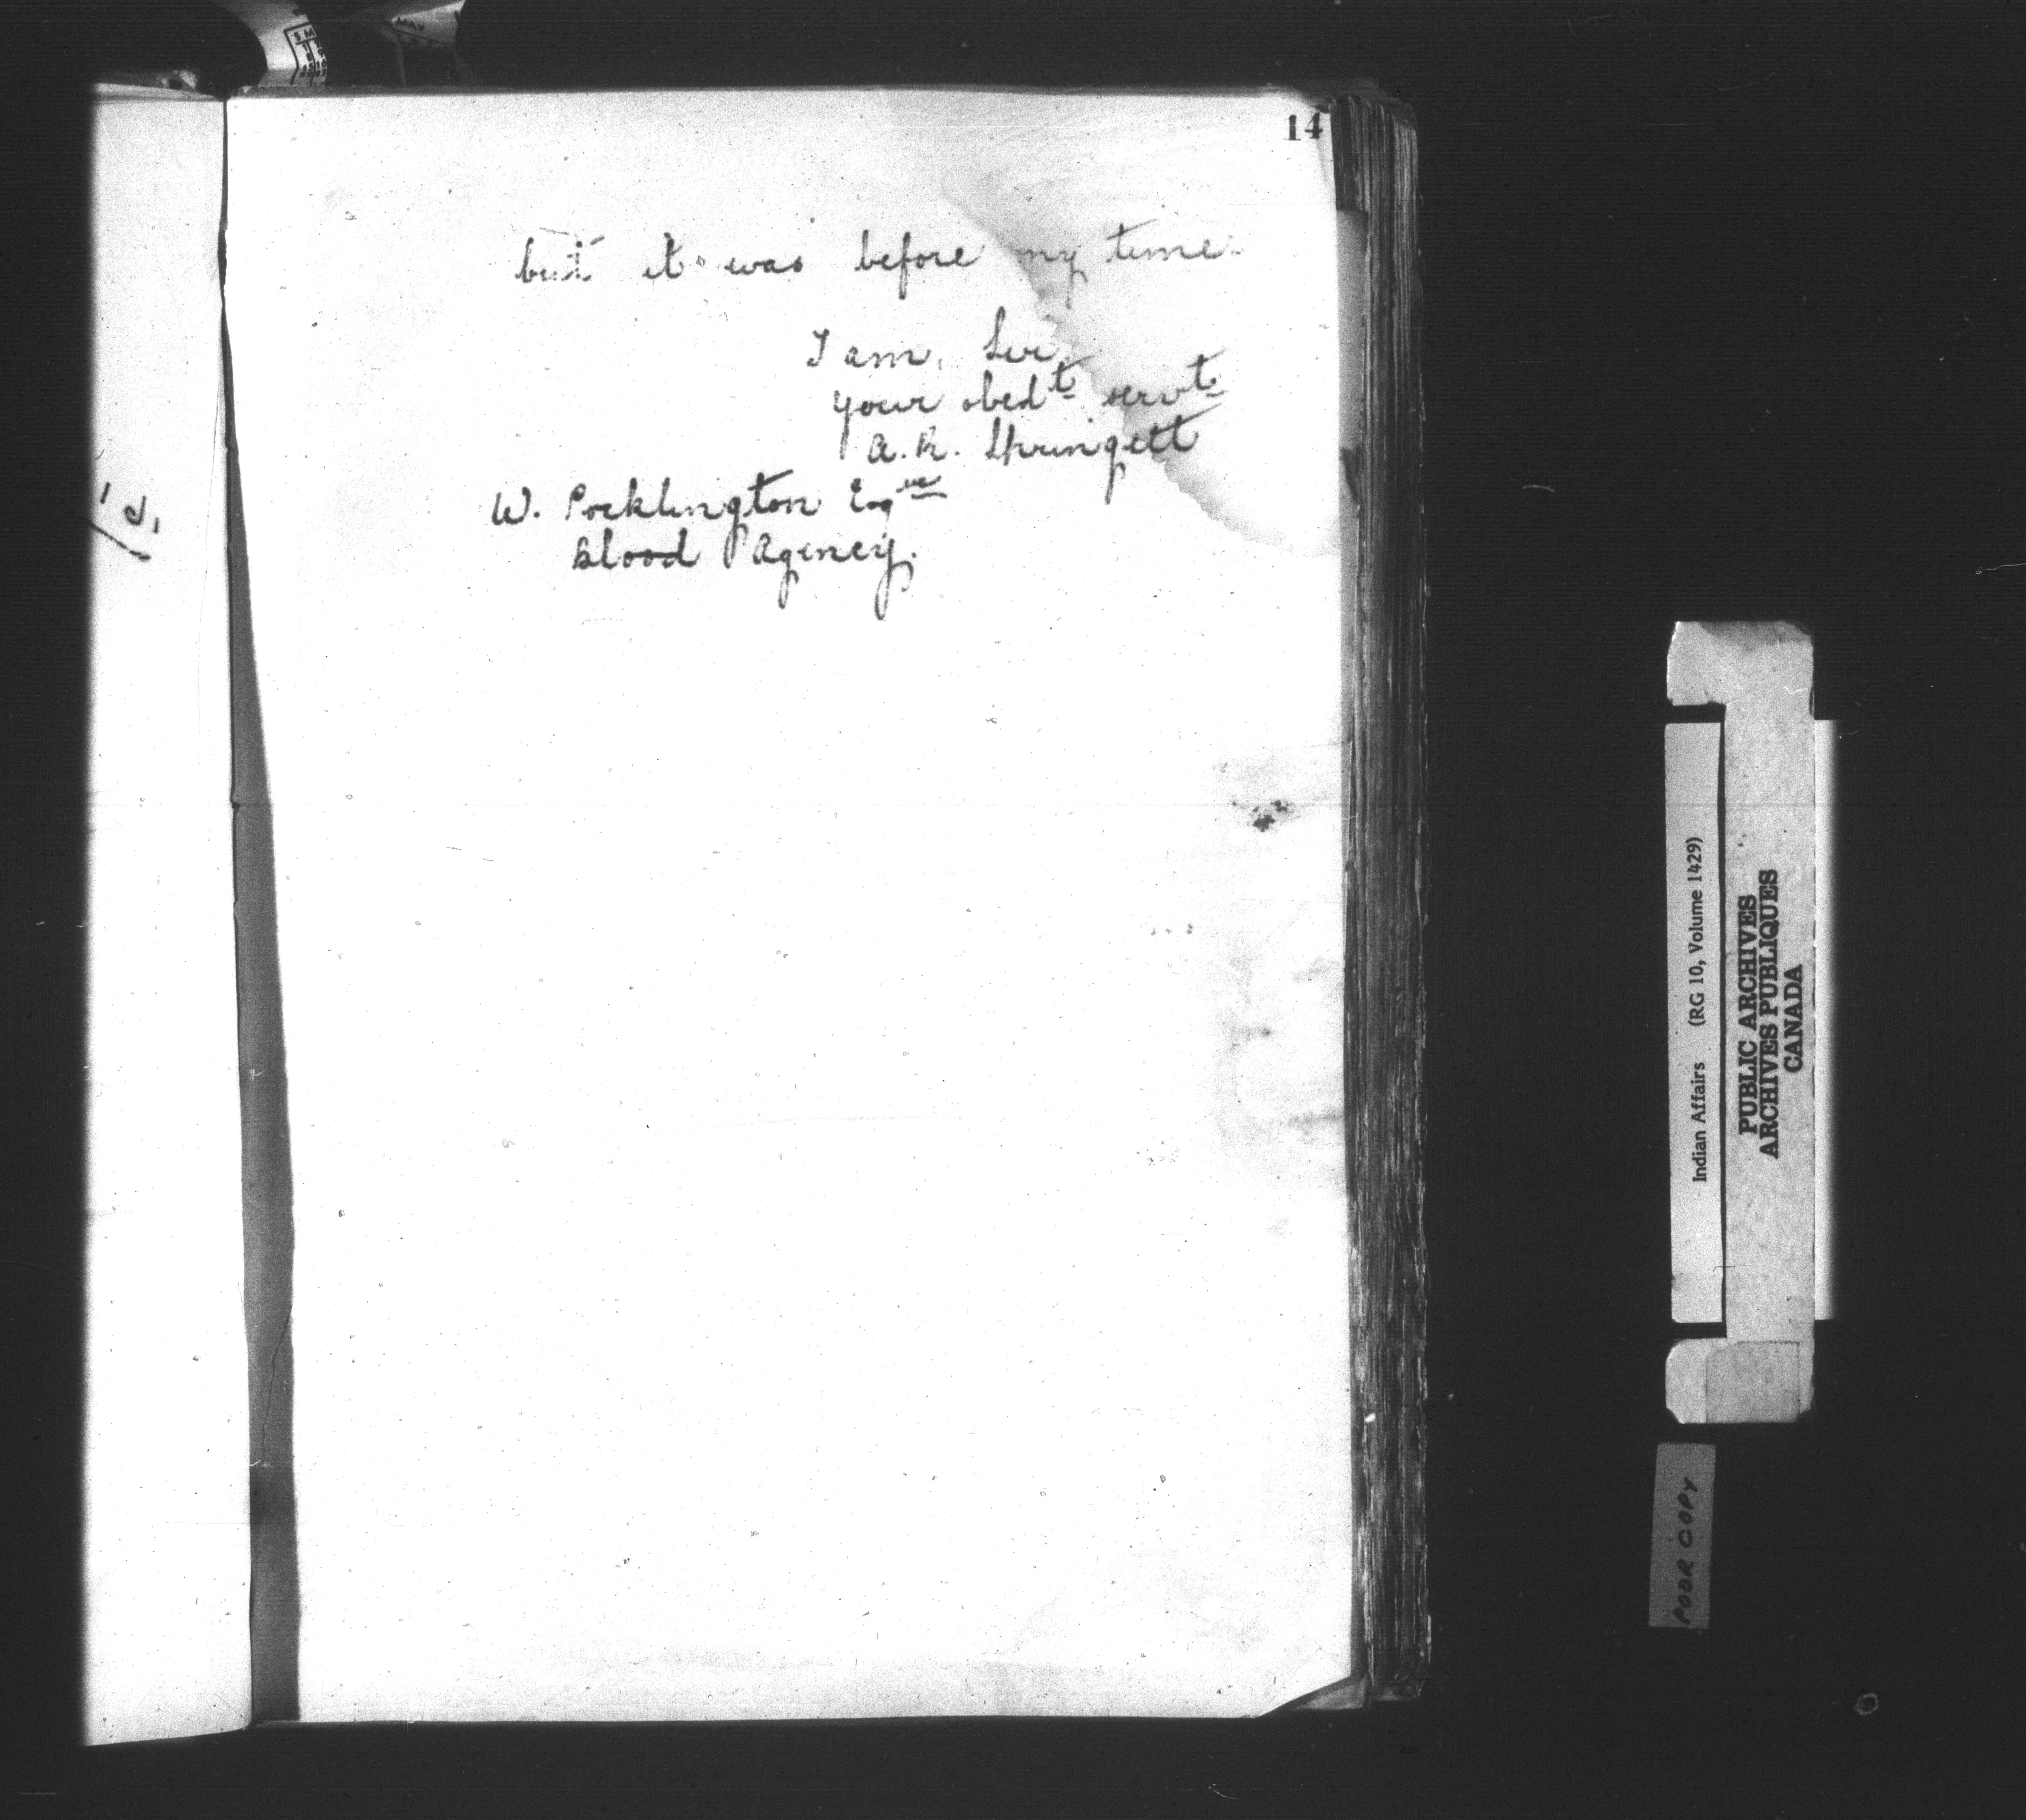 14
but it was before my time.
I am, Sir,
your obedt servt
A.R. Springett
W. Pocklington Esqre
Blood Agency.
Indian Affairs (RG 10, Volume 1429)
PUBLIC ARCHIVES
ARCHIVES PUBLIQUES
CANADA
POOR COPY